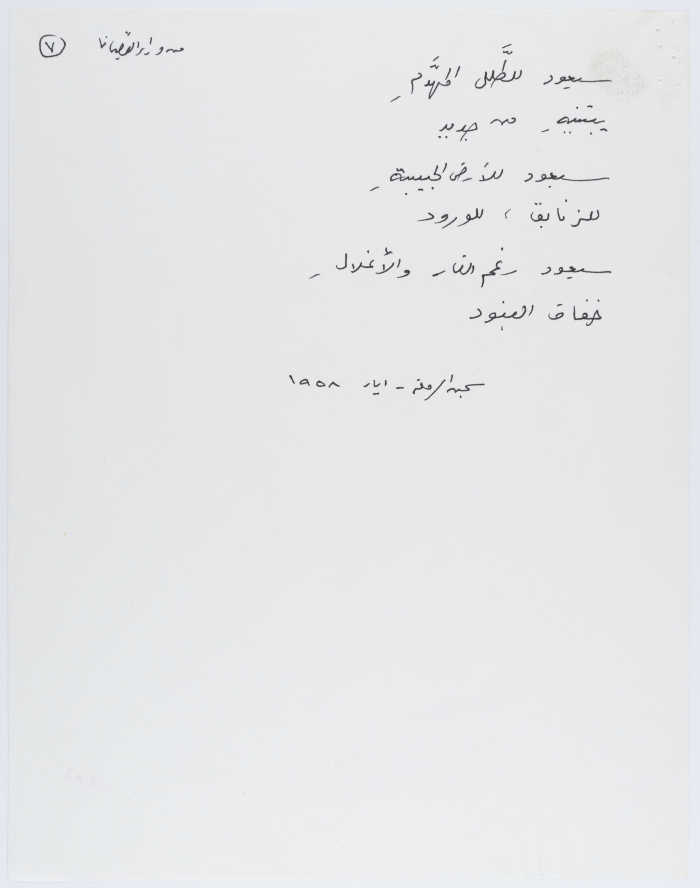 من وراء القضبان ٧
سيعود للطَّلل المهدَّمِ
يبتنيهِ من جديد
سيعود للأرض الحبيبةِ
للزنابق ، للورود
سيعود رغم النار والأغلالِ
خفاق البنود
سجن الرملة - ايار ١٩٥٨